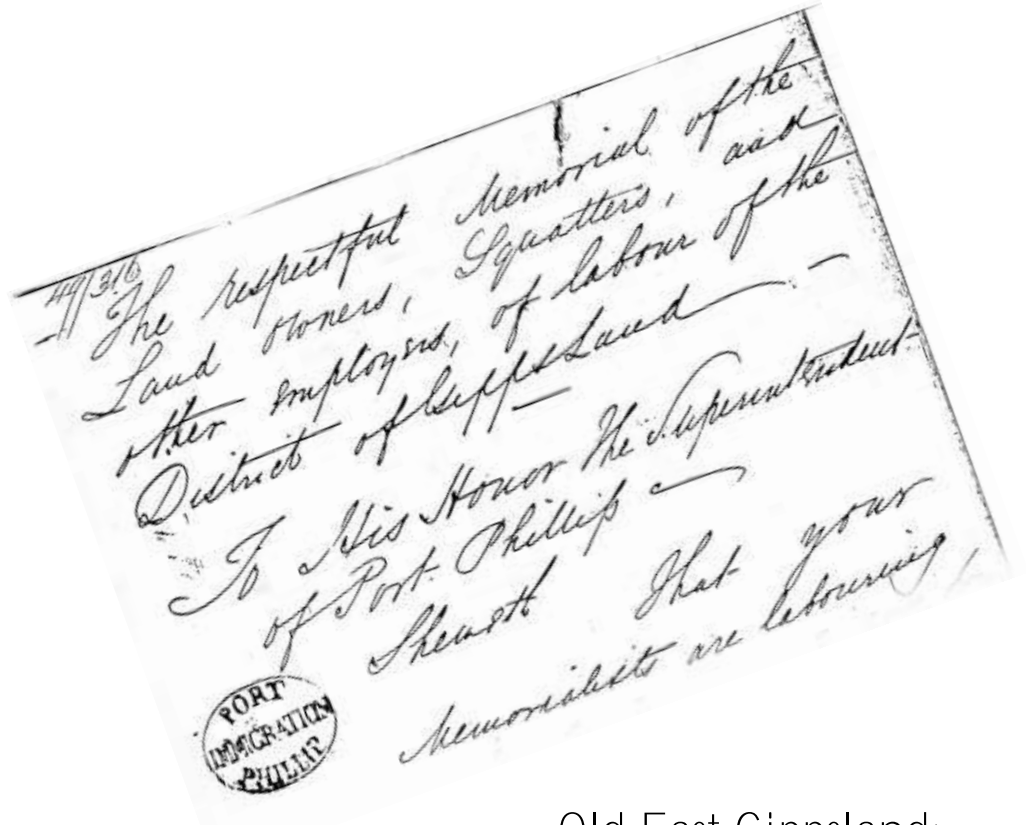 49/316
The respectful Memorial of the
Land owners, Squatters, and
other employers, of labour of the
District of Gipps Land —
To His Honor The Superintendent
of Port Phillip —
Sheweth That your
Memorialists are labouring,
PORT
IMMIGRATION
PHILLIP
Old East Gippsland: